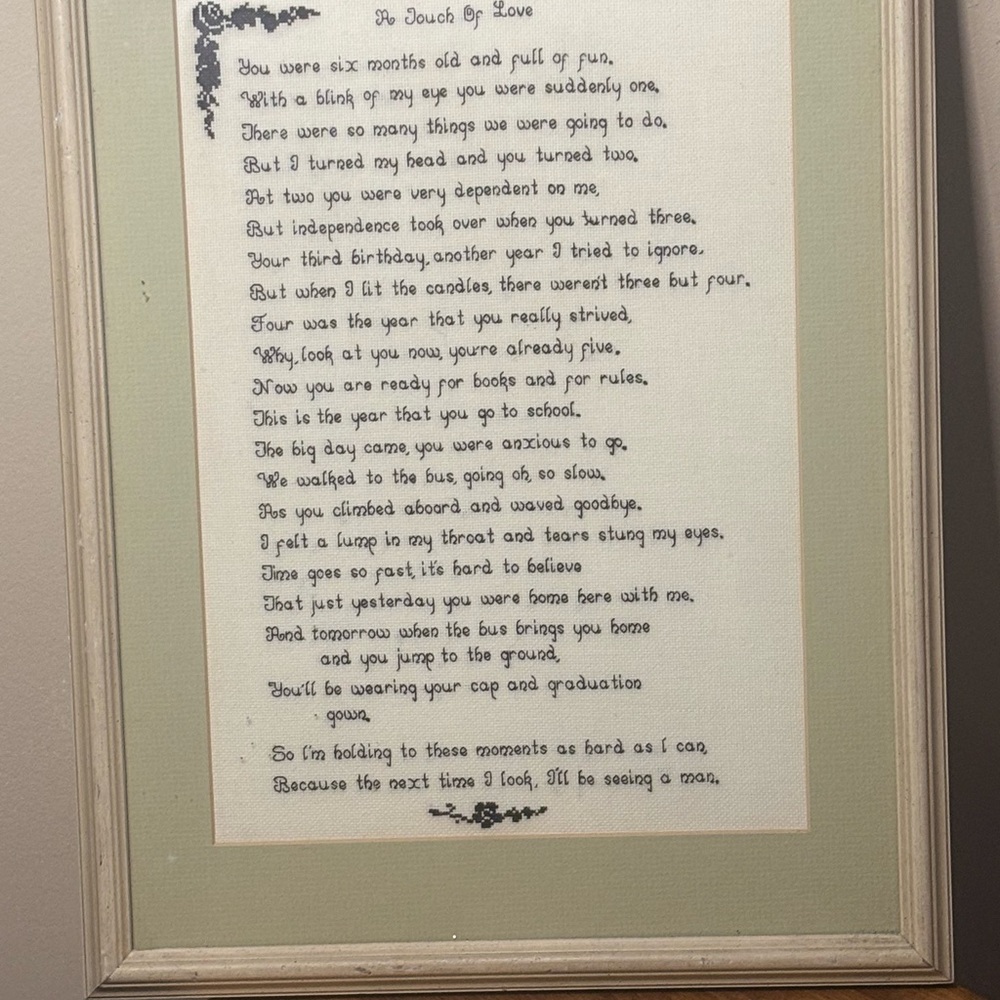 A Touch Of Love
You were six months old and full of fun.
With a blink of my eye you were suddenly one.
There were so many things we were going to do.
But I turned my head and you turned two.
At two you were very dependent on me,
But independence took over when you turned three.
Your third birthday, another year I tried to ignore.
But when I lit the candles, there weren't three but four.
Four was the year that you really strived,
Why, look at you now, you're already five.
Now you are ready for books and for rules.
This is the year that you go to school.
The big day came, you were anxious to go.
We walked to the bus, going oh, so slow.
As you climbed aboard and waved goodbye.
I felt a lump in my throat and tears stung my eyes.
Time goes so fast, it's hard to believe
That just yesterday you were home here with me.
And tomorrow when the bus brings you home
and you jump to the ground,
You'll be wearing your cap and graduation
gown.
So I'm holding to these moments as hard as I can,
Because the next time I look, I'll be seeing a man.